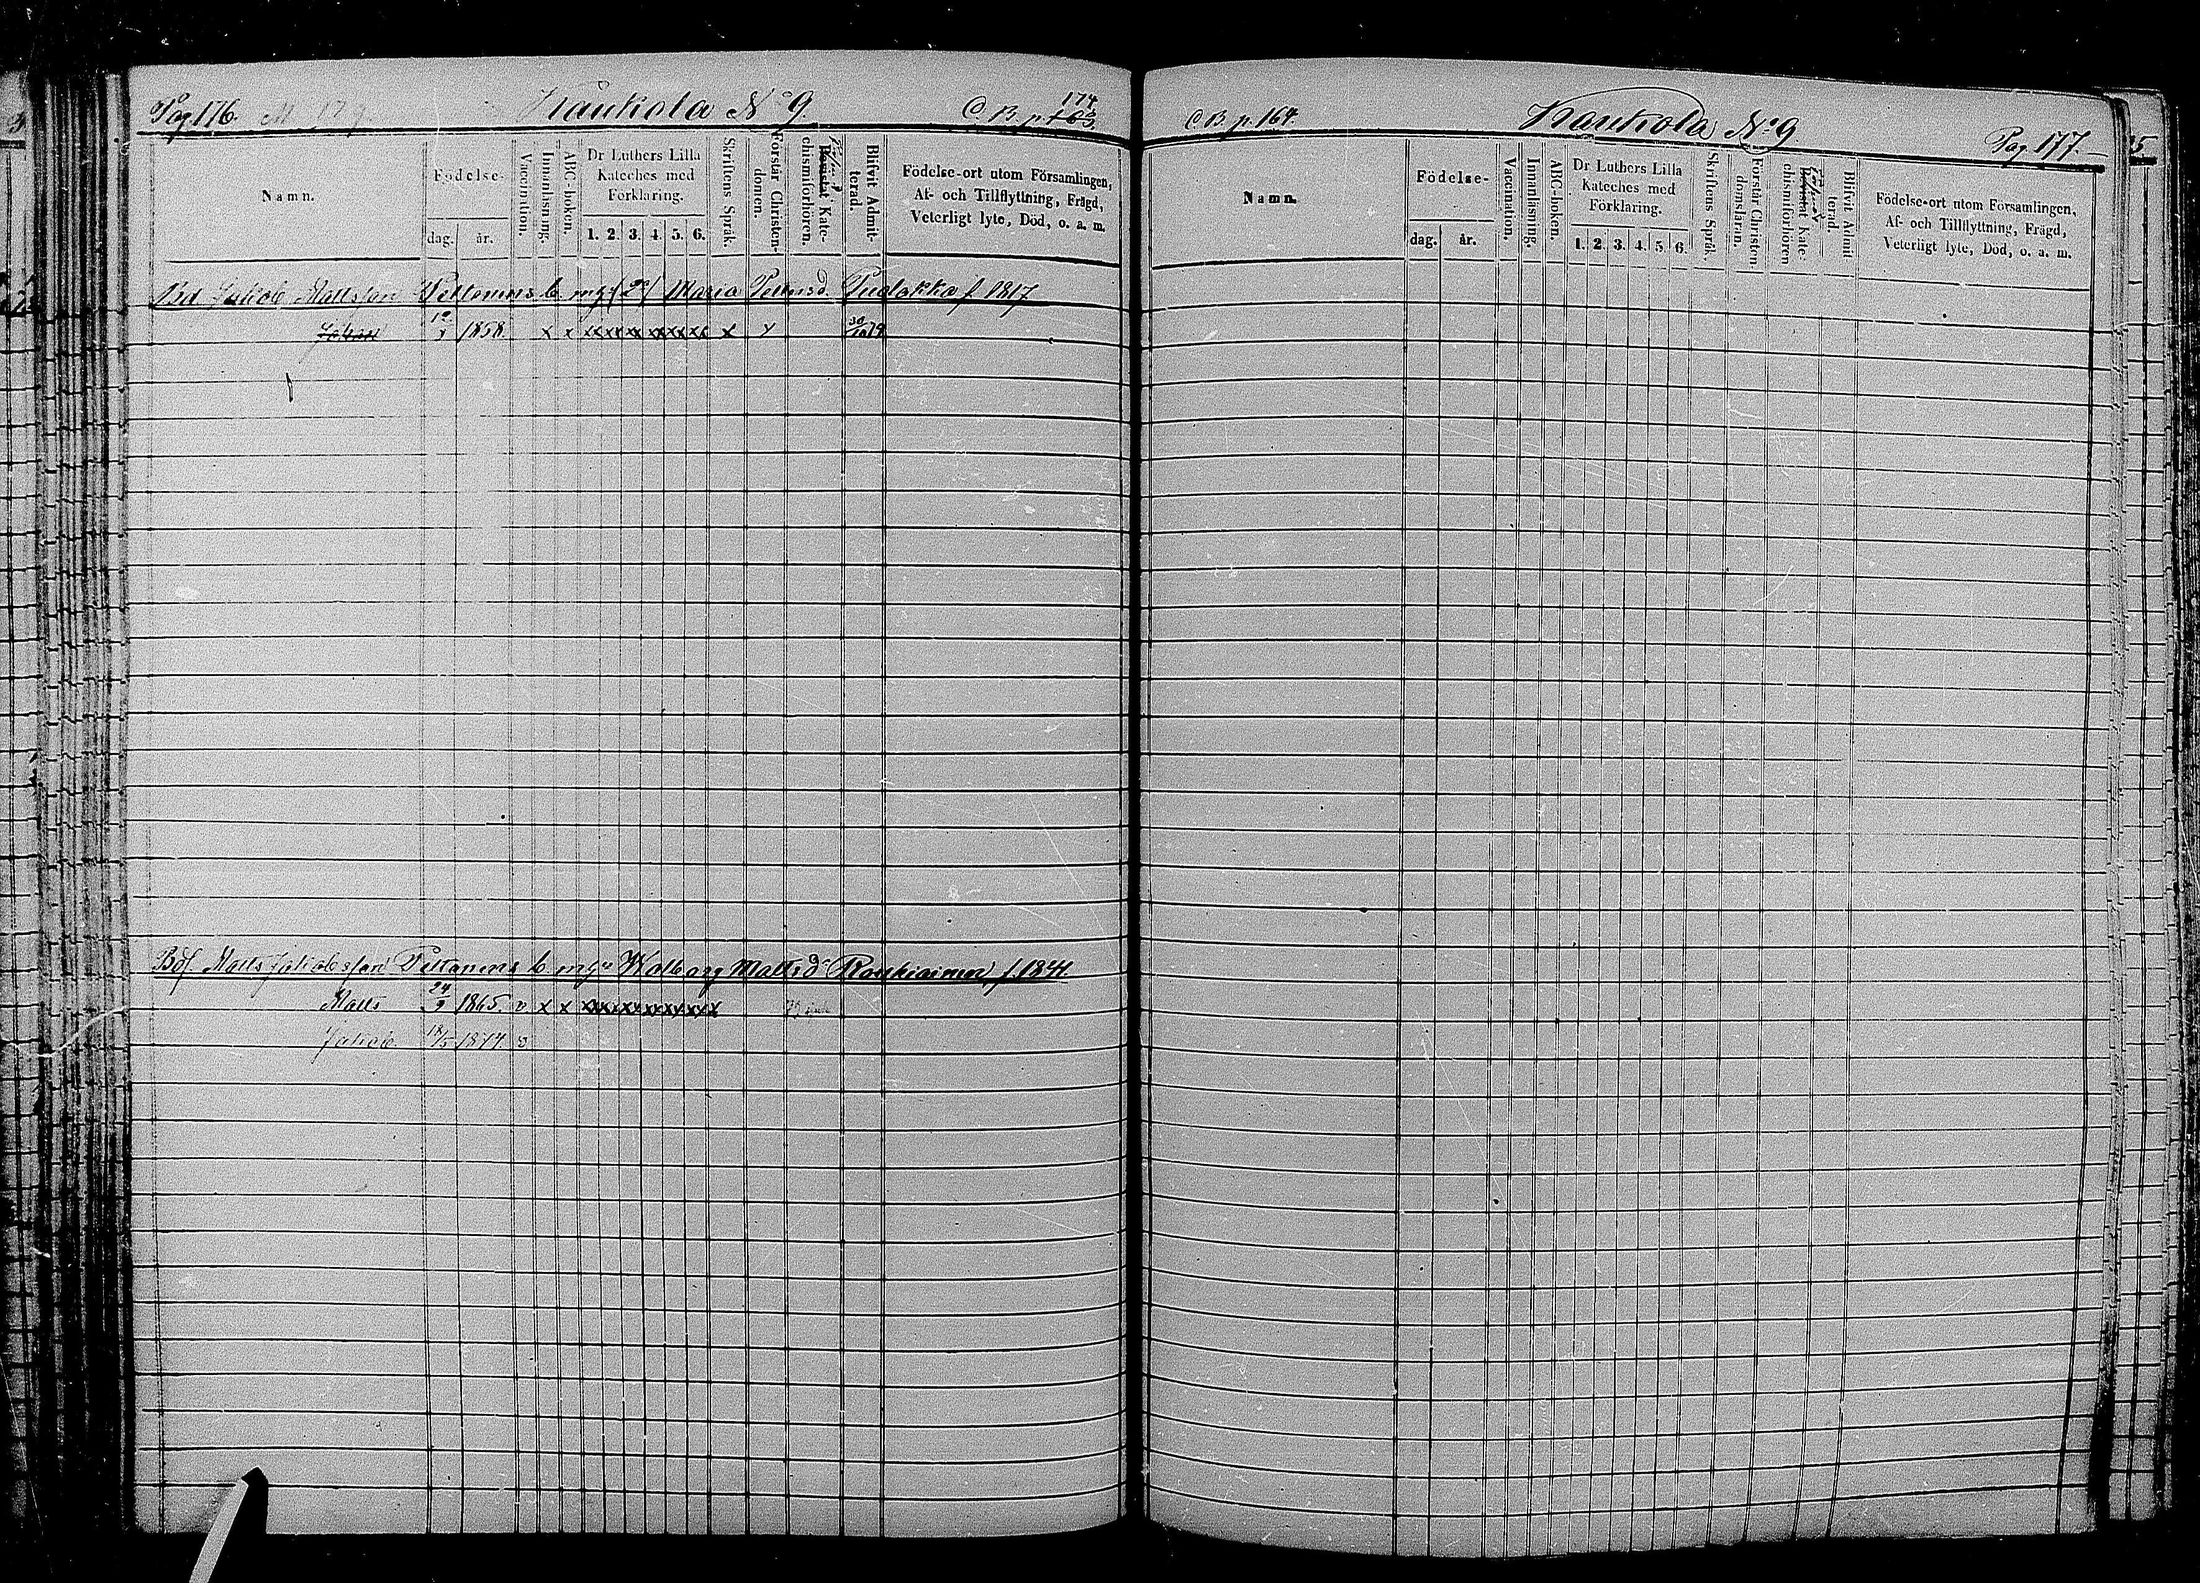 Pag 176.
Kaukola No 9.
174
C. B. p. 163.
Namn.
Födelse-
dag. år.
Vaccination.
Innanläsning.
ABC-boken.
Dr Luthers Lilla
Kateches med
Förklaring.
1. 2. 3. 4. 5. 6.
Skriftens Språk.
Förstår Christen-
domen.
Bevistat Kate-
chismiförhören.
Blifvit Admit-
terad.
Födelse-ort utom Församlingen,
Af- och Tillflyttning, Frägd,
Veterligt lyte, Död, o. a. m.
Jakob Mattsson Pettonens b. m. Maria Pudakka f. 1817
Johan 1858 x x xx xx xx xx xx xx x x
Matts Jakobsson Pettonens b. m. Walborg Mattsd.
Matts 24/9 1865. v x x
Jakob 1874. v
C. B. p. 164.
Kaukola No 9
Pag. 177.
Namn.
Födelse-
dag. år.
Vaccination.
Innanläsning.
ABC-boken.
Dr Luthers Lilla
Kateches med
Förklaring.
1. 2. 3. 4. 5. 6.
Skriftens Språk.
Förstår Christen-
domsläran.
Bevistat Kate-
chismiförhören
Blifvit Admit
terad.
Födelse-ort utom Församlingen,
Af- och Tillflyttning, Frägd,
Veterligt lyte, Död, o. a. m.